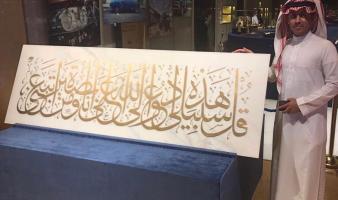 قل هذه سبيلي ادعو الى الله على بصيرة انا ومن اتبعني